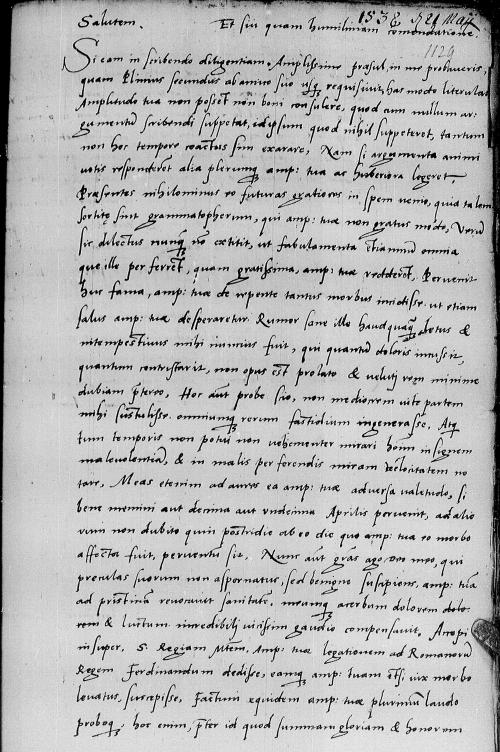 1538 21 Maij
Salutem. Et sui quam humilimam comendatione.
1129
Si eam in scribendo diligentiam, Amplissime præsul, in me probaveris,
quam Plinius secundus ab amico suo requisivit, has modo literulas
Amplitudo tua non posset non boni consulere, quod cum nullum ar-
gumentū scribendi suppetat, id ipsum quod nihil suppeteret, tantum
non hoc tempore coactus sim exarare, Nam si argumenta animi
votis responderent alia plerumq amp: tua ac huberiora legeret,
Præsentes nihilominus eo futuras gratiores in spem venio, quia talem
sortitę sint grammatopherum, qui amp: tuæ non gratus modo, Verū
sic dilectus nunq nō extitit, ut fabulamenta etiamnū omnia
que ille per ferret, quam gratissima, amp: tuæ redderet, Pervenit
huc fama, amp: tuæ de repente tantus morbus incidisse ut etiam
salus amp: tuæ desperaretur Rumor sane ille haudquaq letus &
intempestivus mihi nuncius fuit, qui quantū doloris incussit,
quantum contristarit, non opus est prolato & veluti rem minime
dubiam prætereo, Hoc aūt probe scio, non mediocrem vitę partem
mihi sustulisse omniumq rerum fastidium ingenerasse, Atq
tum temporis non potui non vehementer mirari hoīm insignem
malevolentiā, & in malis perferendis miram velocitatem no
tare, Meas etenim ad aures ea amp: tuæ adversa valetudo, si
bene memini aut decima aut undecima Aprilis pervenit, ad alio
rum non dubito quin postridie ab eo die quo amp: tua eo morbo
affecta fuit, perventū sit, Nunc aūt grās ago deo meo, qui
præculas suorum non aspernatus, sed benigne suscipiens, amp: tuā
ad pristinā revocavit sanitatē, meumq acerbum dolorem dolo-
rem & luctum incredibili vicissim gaudio compensavit, Accepi
insuper, S. Regiam Mtem, Amp: tuæ legationem ad Romanorū
Regem Ferdinandum dedisse, eamq amp: tuam etsi vix morbo
levatus, suscepisse, Factum equidem amp: tuæ plurimū laudo
proboq, hoc enim, præter id quod summam gloriam & honorem